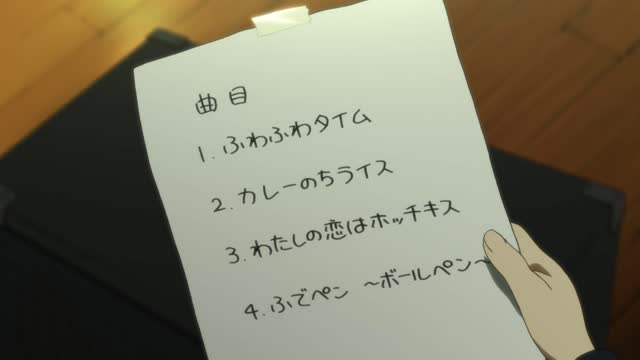 曲目
1. ふわふわタイム
2. カレーのちライス
3. わたしの恋はホッチキス
4. ふでペン ～ボールペン～